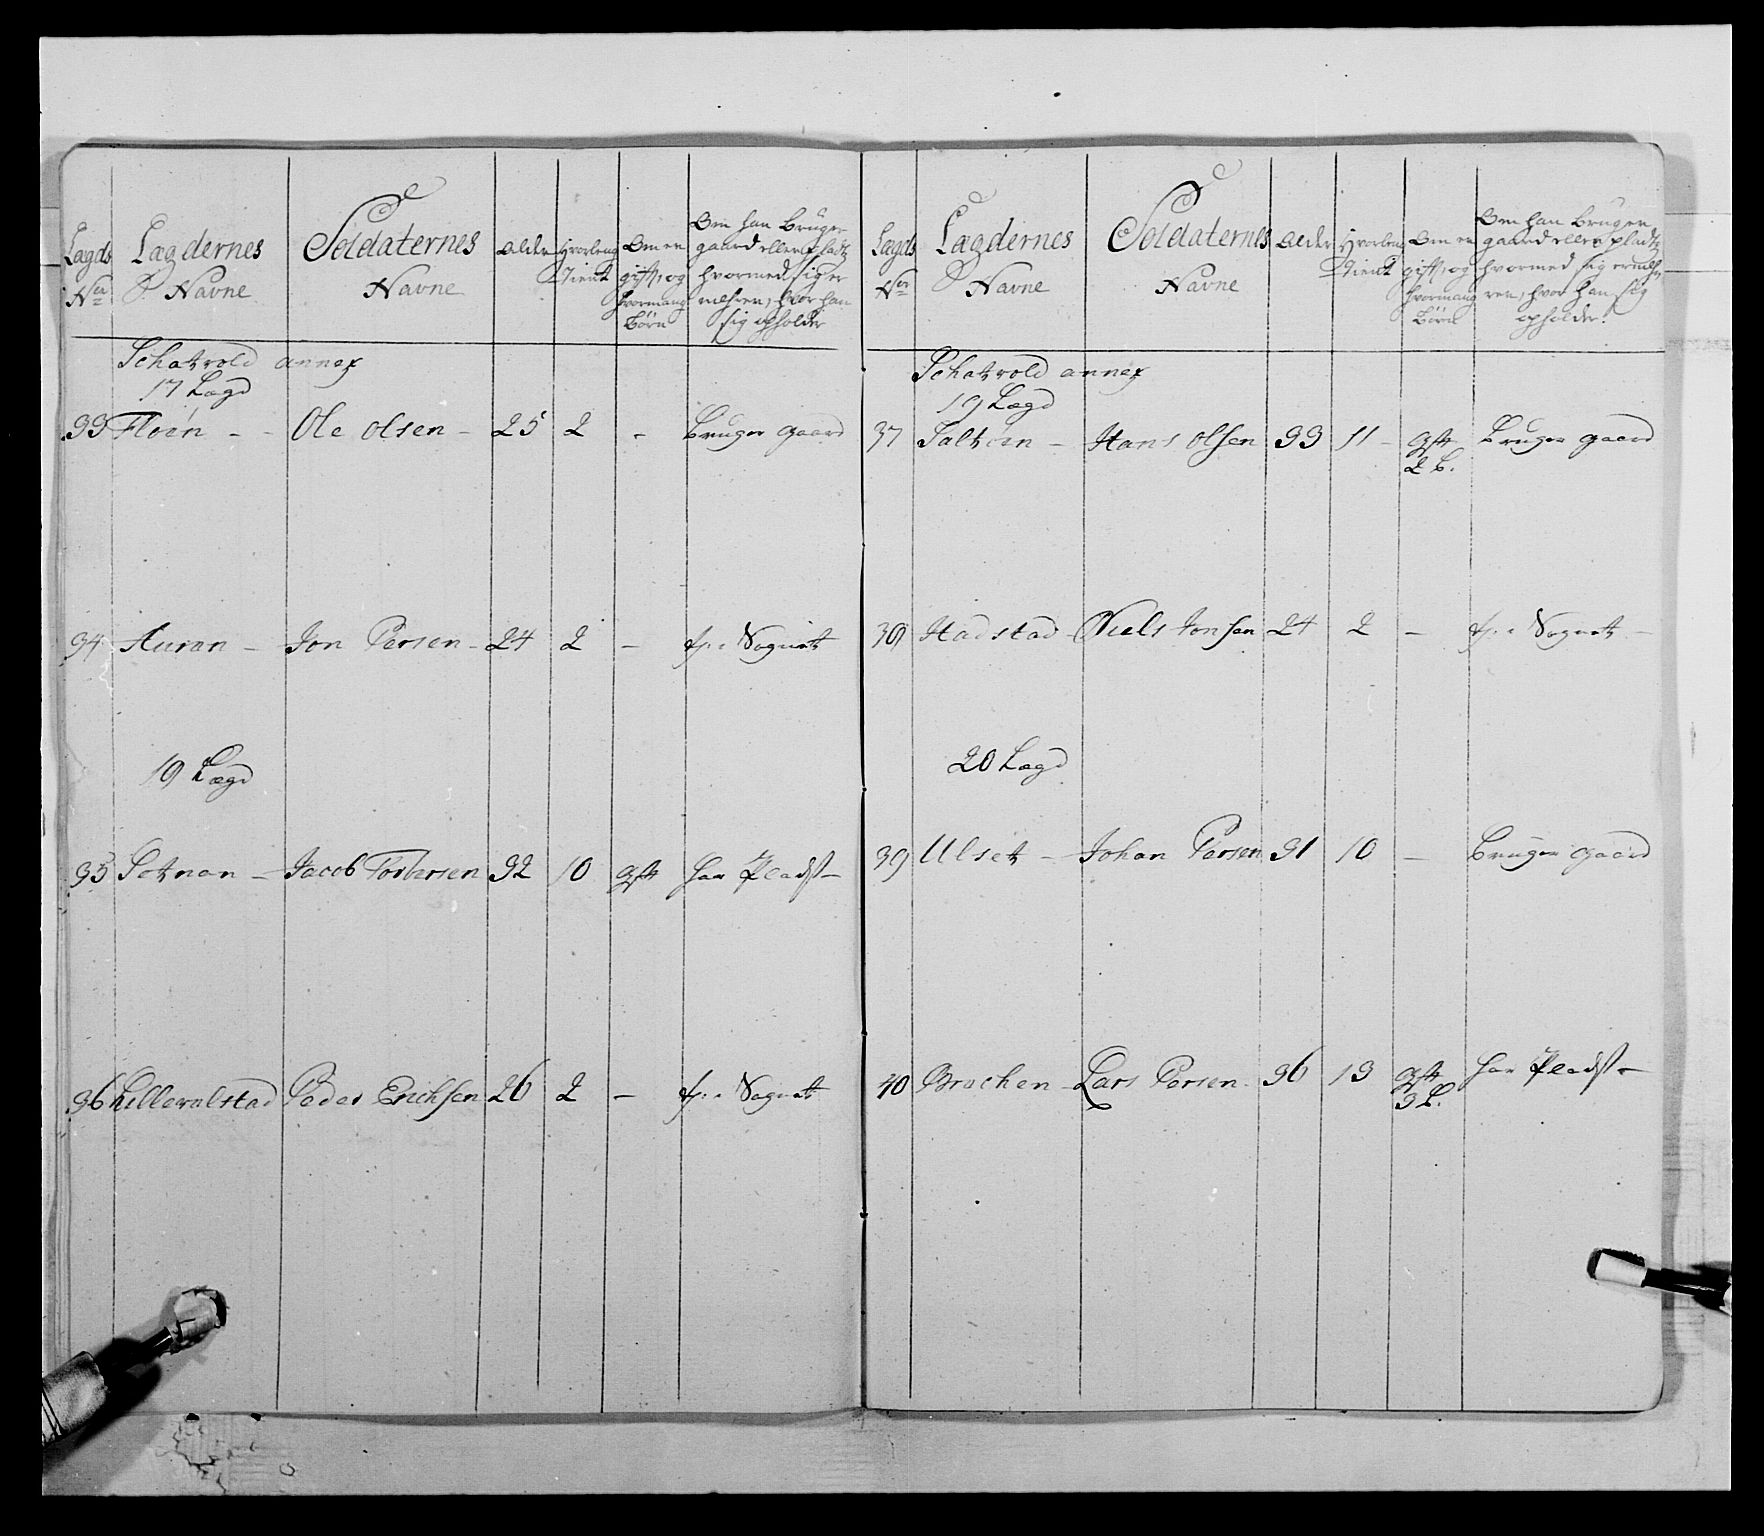 Lægds Nr
Lægdernes Navne
Soldaternes Navne
Alder
Hvorleng Tient
Om en gift, og hvormang Børn
Om han bruger gaard eller pladtz hvormed sig er nehren, hvor han sig opholder
Schatvold annex
17 Lægd
33 Floen - - Ole Olsen - 25 2 - Bruger gaard
34 Auran - Jon Persen - 24 2 - Sognet
18 Lægd
35 Sotnan - Jacob 32 10 gift har Pladst -
36 Peder Erichsen 26 2 - Sognet
Lægds Nr
Lægdernes Navne
Soldaternes Navne
Alder
Hvorleng Tient
Om en gift, og hvormang Børn
Om han bruger gaard eller pladtz hvormed sig ernehren, hvor han sig opholder.
Schatvold annex
19 Lægd
37 Hans Olsen 33 11 - gift 2 b. Bruger gaard
38 Hadstad Niels Jonsen 24 2 - Sognet -
20 Lægd
39 Ulset - Johan Persen 31 10 - Bruger gaard
40 Brachen - Lars Persen - 36 13 gift 3 b. har Pladst -